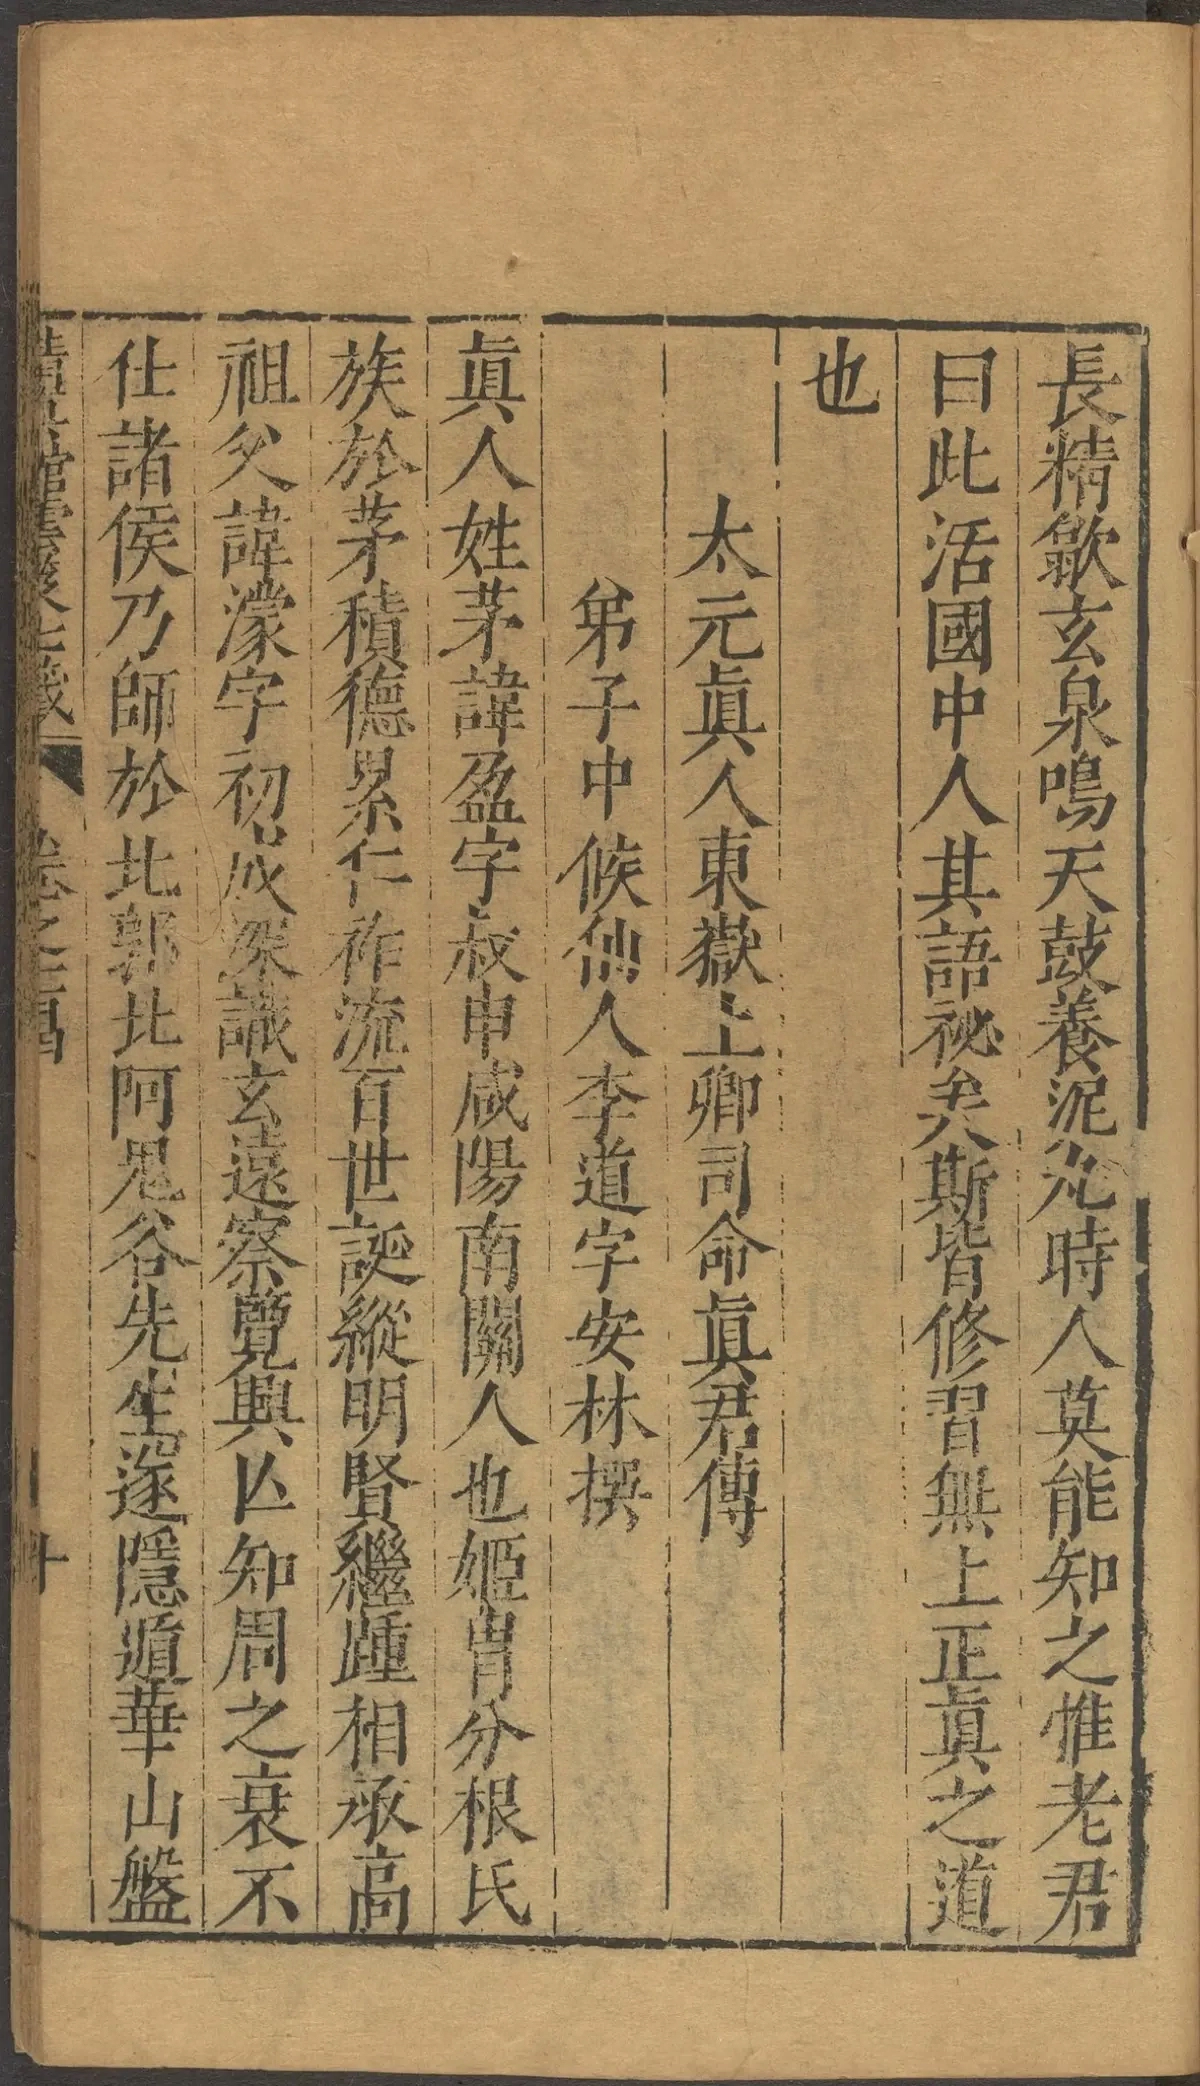 長精歙玄泉鳴天鼓養泥丸時人莫能知之惟老君
曰此活國中人其語祕矣斯皆修習無上正真之道
也
太元真人東嶽上卿司命真君傳
弟子中候仙人李道字安林撰
真人姓茅諱盈字叔申咸陽南關人也姬胄分根氏
族於茅積德累仁祚流百世誕縱明賢繼踵相承高
祖父諱濛字初成深識玄遠察覽興亾知周之衰不
仕諸侯乃師於北郭北阿鬼谷先生遂隱遁華山盤
清真館雲笈七籤 卷之百四 十